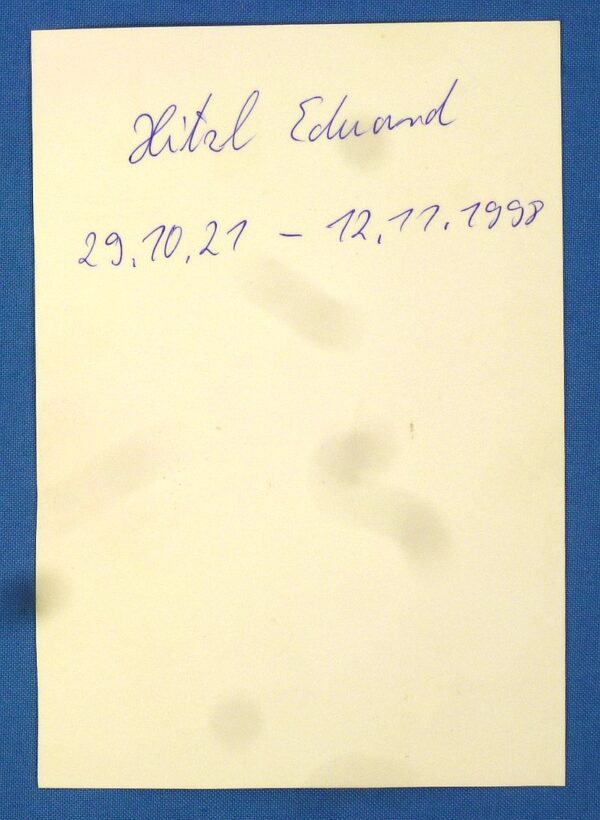 Hitzl Eduard
29.10.21 – 12.11.1998